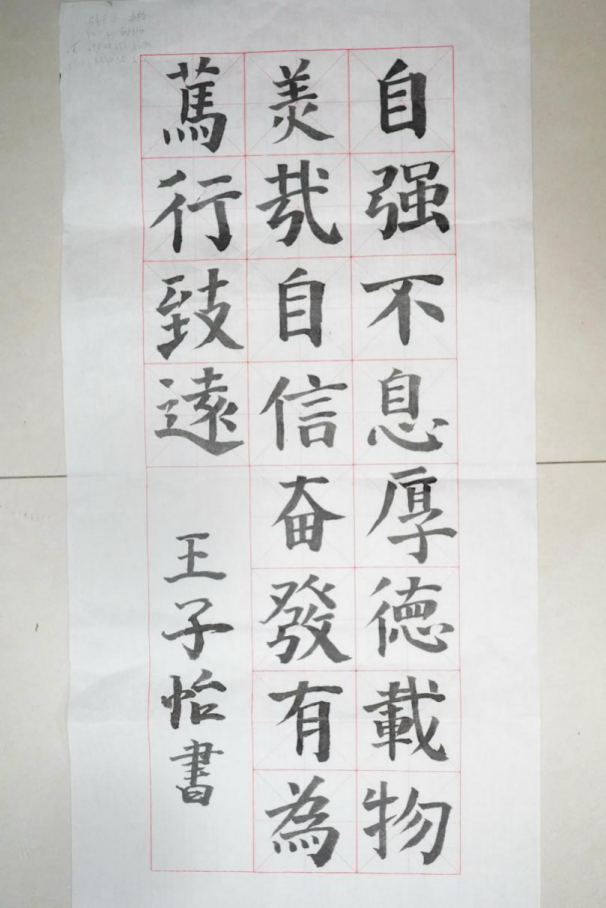 自强不息厚德載物
羙哉自信奋發有為
篤行致遠
王子怡書